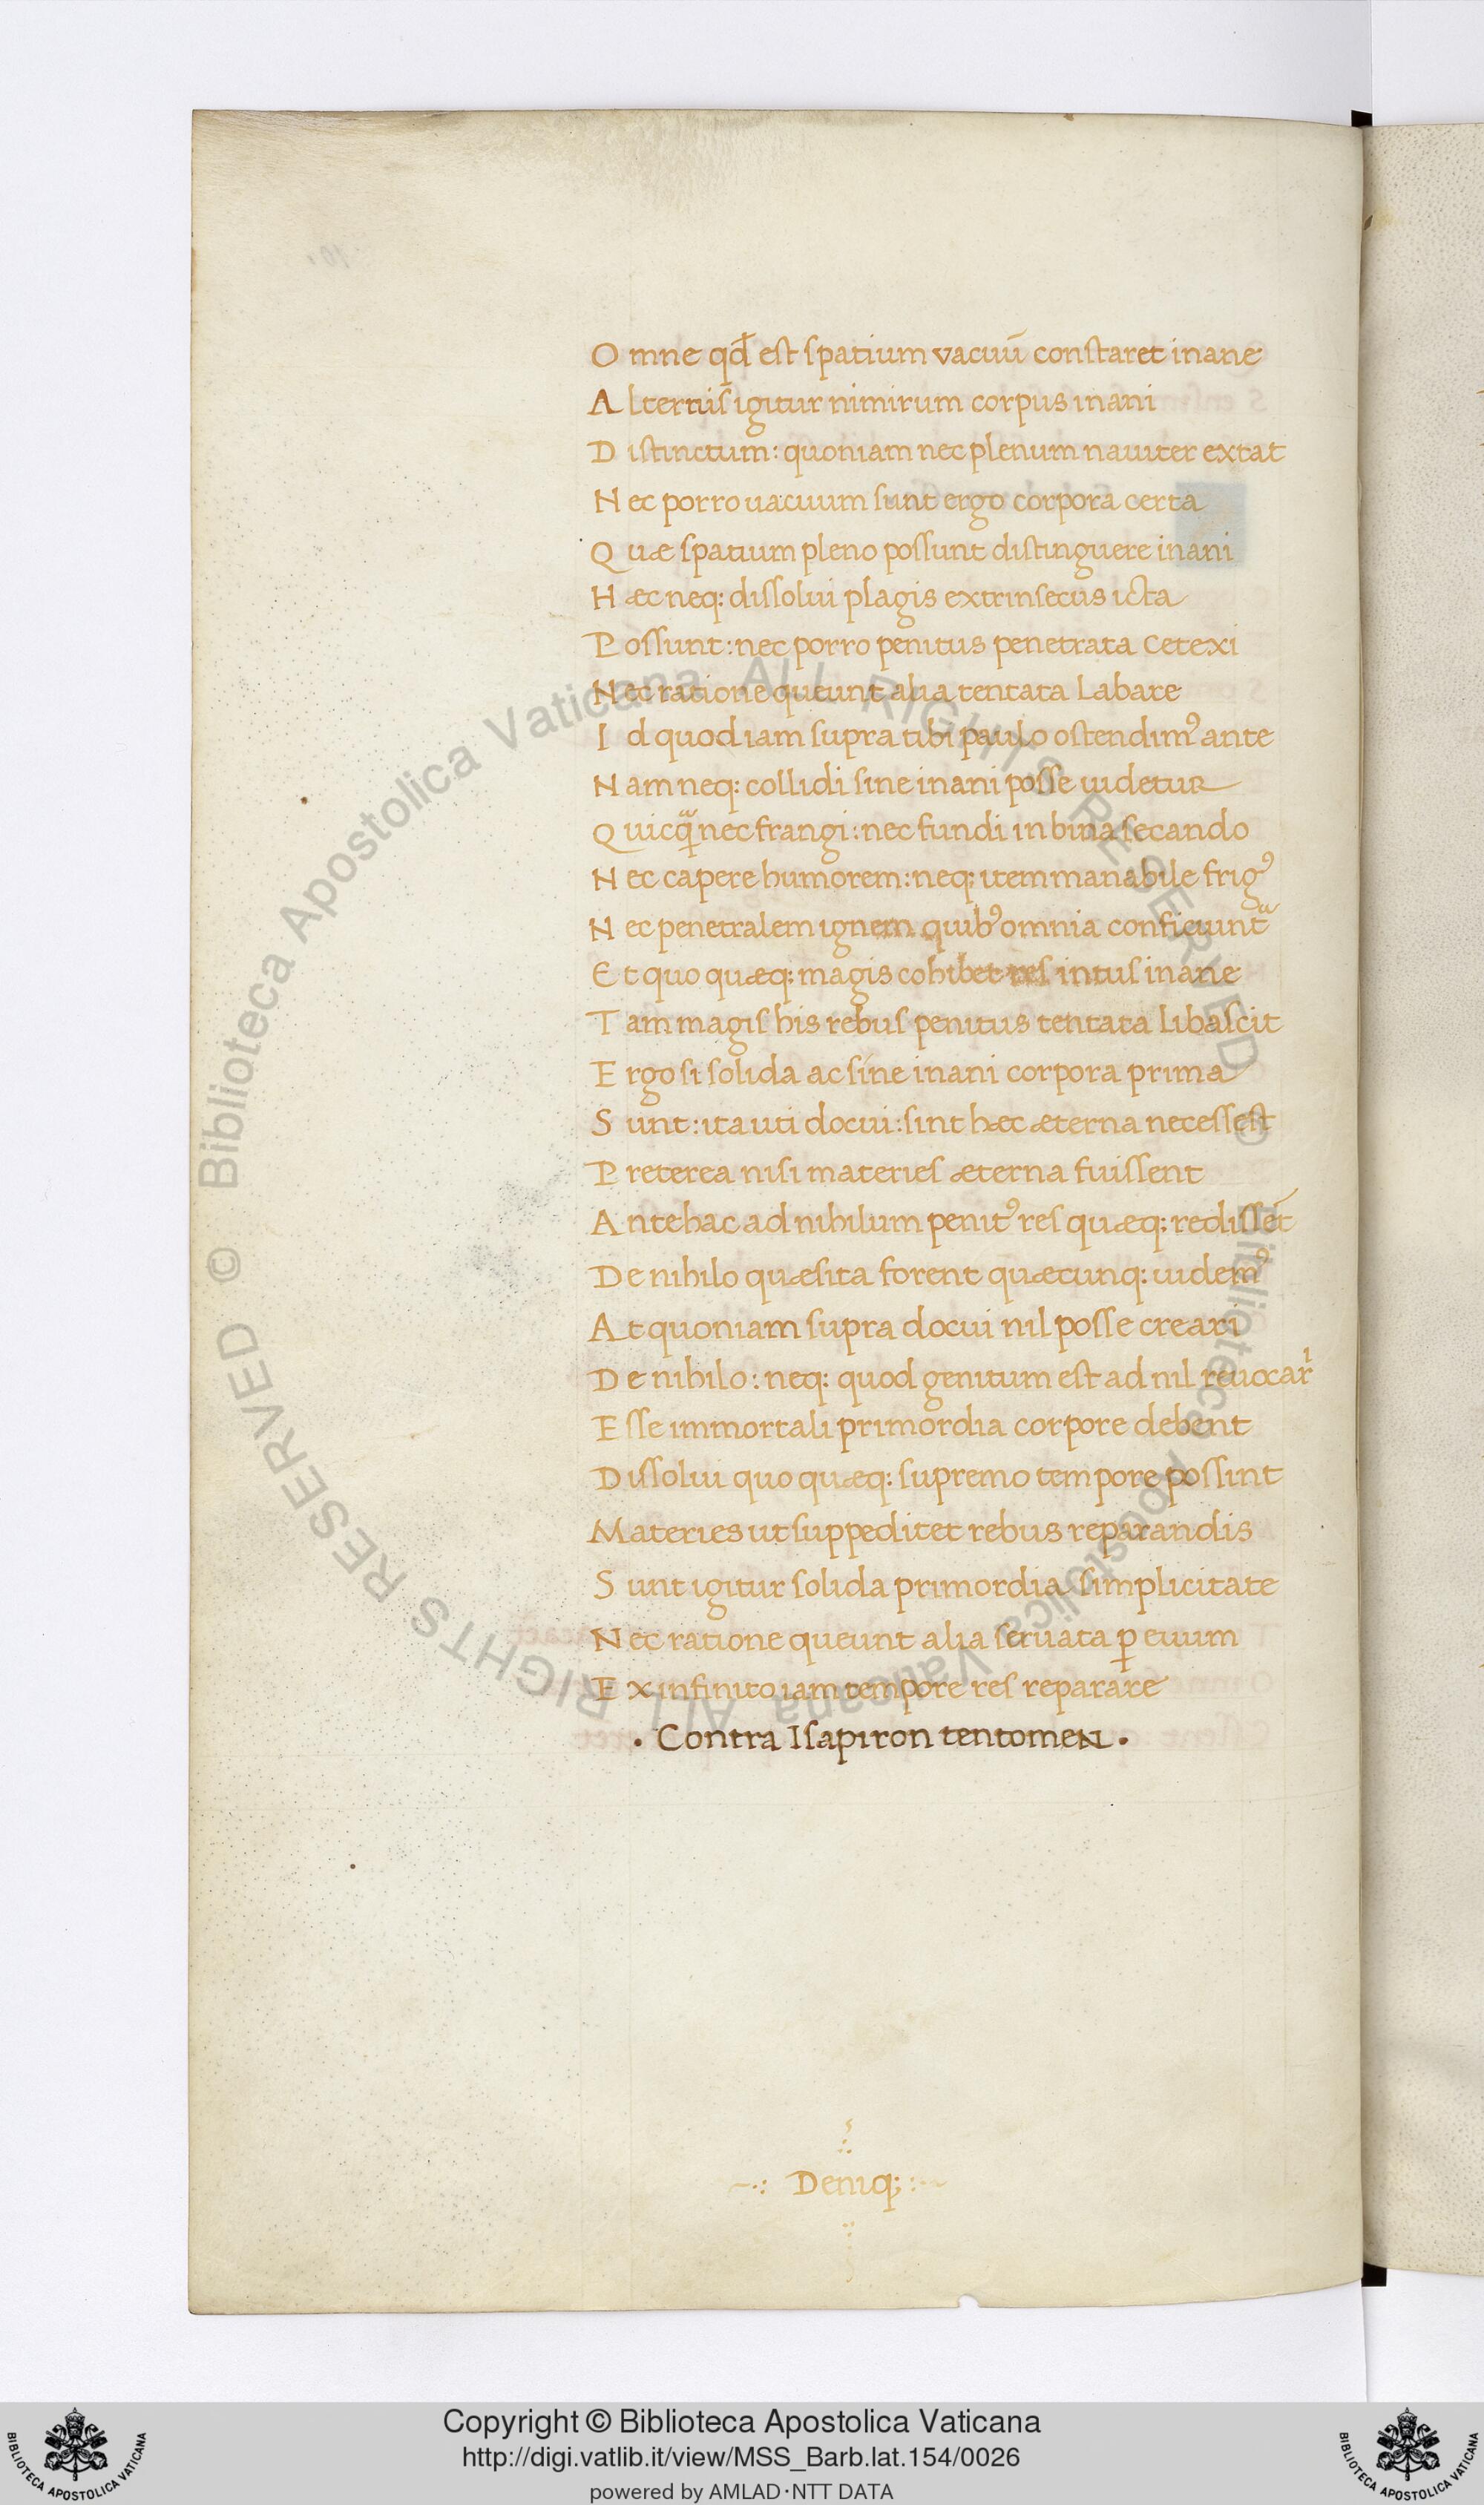 O mne qd̄ est spatium vacuū constaret inane
A lternis igitur nimirum corpus inani
D istinctum: quoniam nec plenum nauiter extat
N ec porro uacuum sunt ergo corpora certa
Q uæ spatium pleno possunt distinguere inani
H æc neq: dissolui plagis extrinsecus icta
P ossunt: nec porro penitus penetrata cetexi
N ec ratione queunt alia tentata labare
I d quod iam supra tibi paulo ostendimꝰ ante
N am neq: collidi sine inani posse uidetur
Q uicꝗᷓ nec frangi: nec fundi in bina secando
N ec capere humorem: neq; item manabile frigꝰ
N ec penetralem ignem quibꝰ omnia conficiuntᷓ
E t quo quæq; magis cohibet res intus inane
T am magis his rebus penitus tentata libascit
E rgo si solida ac sine inani corpora prima
S unt: ita uti docui: sint hæc æterna necessest
P reterea nisi materies æterna fuissent
A ntehac ad nihilum penitꝰ res quæq; redissēt
De nihilo quæsita forent quæcunq: uidemꝰ
A t quoniam supra docui nil posse creari
D e nihilo: neq: quod genitum est ad nil reuocarⁱ
E sse immortali primordia corpore debent
D issolui quo quæq: supremo tempore possint
Materies ut suppeditet rebus reparandis
S unt igitur solida primordia simplicitate
N ec ratione queunt alia seruata ꝑ euum
E x infinito iam tempore res reparare
· Contra Isapiron tentomen ·
Deniq;
© Biblioteca Apostolica Vaticana ALL RIGHTS RESERVED
© Biblioteca Apostolica Vaticana ALL RIGHTS RESERVED
Copyright © Biblioteca Apostolica Vaticana
http://digi.vatlib.it/view/MSS_Barb.lat.154/0026
powered by AMLAD·NTT DATA
BIBLIOTECA APOSTOLICA VATICANA
BIBLIOTECA APOSTOLICA VATICANA